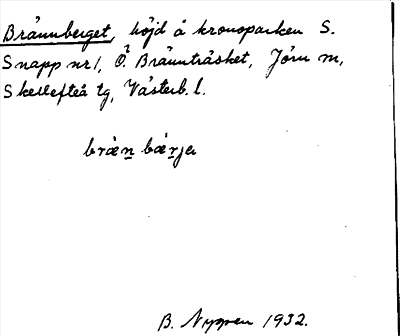 Brännberget, höjd å kronoparken S.
Snapp nr 1, Ö. Brännträsket, Jörn m,
Skellefteå tg, Västerb. l.
bræn bærjə
B. Nyppen 1932.